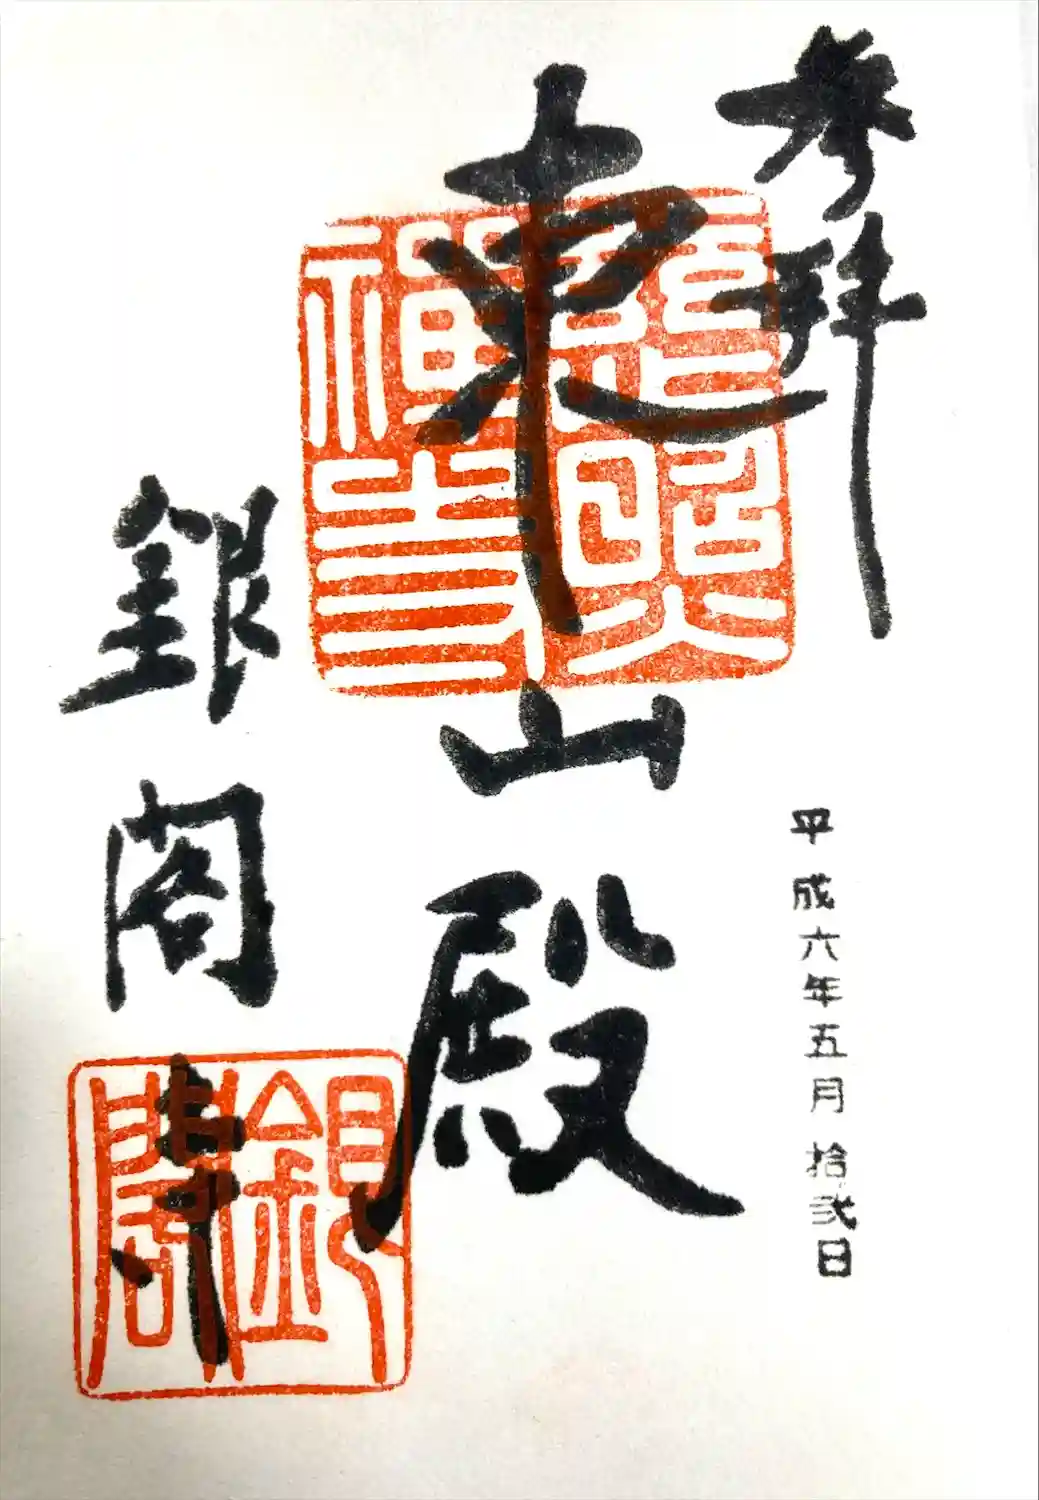 参拝
平成六年五月拾弐日
東山殿
慈照
禅寺
銀閣寺
銀
閣